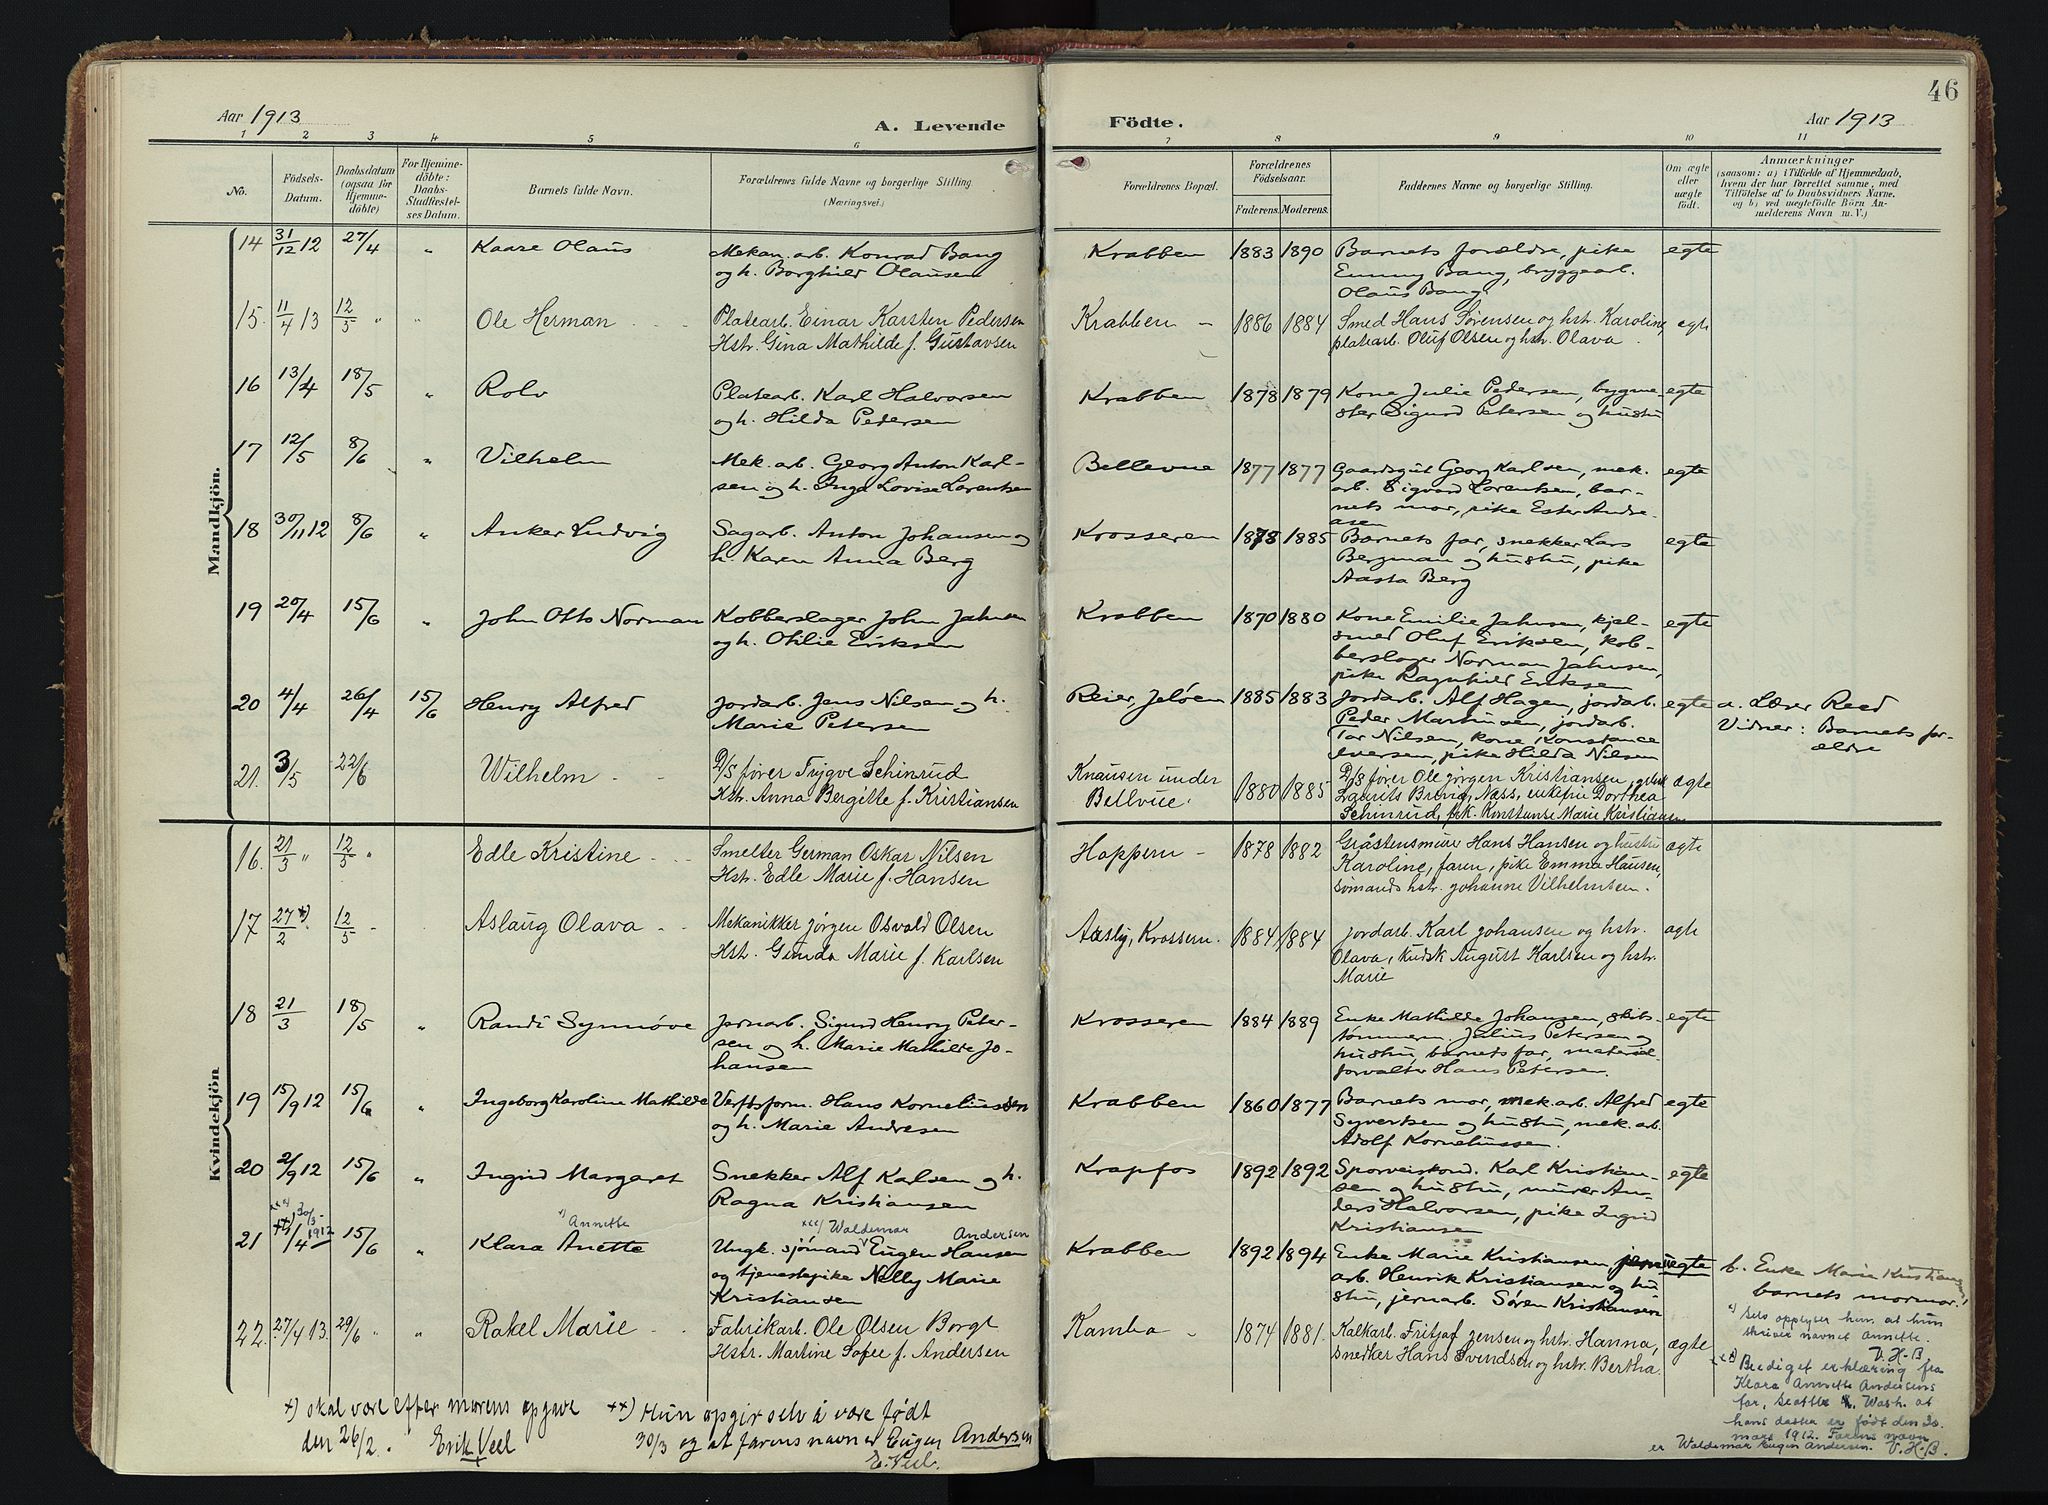 46
Aar 1913
A. Levende
Födte.
Aar 1913
1 2 3 4 5 6 7 8 9 10 11
No.
Födsels-
Datum.
Daabsdatum
(ogsaa for
Hjemme-
döbte)
For Hjemme-
döbte:
Daabs-
Stadfæstel-
ses Datum.
Barnets fulde Navn.
Forældrenes fulde Navne og borgerlige Stilling
(Næringsvei.)
Forældrenes Bopæl.
Forældrenes
Födselsaar.
Faderens. Moderens.
Faddernes Navne og borgerlige Stilling.
Om ægte
eller
uægte
födt.
Anmærkninger
(saasom: a) i Tilfælde af Hjemmedaab,
hvem der har forrettet samme, med
Tilföielse af to Daabsvidners Navne.
og b) ved uægtefödte Börn An-
melderens Navn m. V.)
Mandkjön.
14 31/12 12 27/4 " Kaare Olaus
Mekan. arb. Konrad Bang
og h. Borghild Olausen
Krabben 1883 1890
Barnets forældre, pike
Emmy Bang, bryggearb.
Olaus Bang
egte
15. 11/4 13 12/5 " " Ole Herman
Platearb. Einar Karsten Pedersen
Hstr. Gina Mathilde f. Gustavsen
Krabben - 1886 1884
Smed Hans Sørensen og hstr. Karoline,
platearb. Oluf Olsen og hstr. Olava.
egte
16 13/4 18/5 " Rolv
Platearb. Karl Halvorsen
og h. Hilda Pedersen
Krabben 1878 1879
Kone Julie Pedersen, bygme-
ster Sigurd Petersen og hustru
egte
17 12/5 8/6 " Vilhelm
Mek. arb. Georg Anton Karl-
sen og h. Inga Lovise Lorentsen
Bellevue 1877 1877
Gaardsgut Georg Karlsen, mek.
arb. Sigvard Lorentsen, bar-
nets mor, pike Ester Andre-
asen
egte
18 30/11 12 8/6 " Anker Ludvig
Sagarb. Anton Johansen og
h. Karen Anna Berg
Krosseren 1878 1885
Barnets far, snekker Lars
Bergman og hustru, pike
Aasta Berg
egte
19 20/4 15/6 " John Otto Norman
Kobberslager John Jahnsen
og h. Othilie Eriksen
Krabben 1870 1880
Kone Emilie Jahnsen, kjel-
smed Oluf Eriksen, kob-
berslager Norman Jahnsen,
pike Ragnhild Eriksen
egte
20 4/4 26/4 15/6 Henry Alfred
Jordarb. Jens Nilsen og h.
Marie Petersen
Reier, Jeløen 1885 1883
Jordarb. Alf Hagen, jordarb.
Peder Martinsen, jordarb.
Tor Nilsen, kone Konstance
Iversen, pike Hilda Nilsen
egte
a. Lærer Reed
Vidner: Barnets for-
ældre
21. 3/5 22/6 Wilhelm
D/S fører Trygve Schinrud
Hstr. Anna Bergitte f. Kristiansen
Knausen under
Bellvue. 1880 1885
D/S fører Ole Jørgen Kristiansen,
Laurits Næss, enkefru Dorthea
Schinrud, pk. Konstanse Marie Kristiansen
ægte
Kvindekjön
16. 21/3 " 12/5 " Edle Kristine
Smelter German Oskar Nilsen
Hstr. Edle Marie f. Hansen
Hoppern - 1878 1882
Gråstensmurer Hans Hansen og hustru
Karoline, faren, pike Emma Hansen,
sømands hstr. Johanne Vilhelmsen.
ægte
17 27/2 +) 12/5 Aslaug Olava
Mekanikker Jørgen Osvald Olsen
Hst. Gunda Marie f. Karlsen
Aasly, Krossern. 1884 1884
Jordarb. Karl Johansen og hstr.
Olava, Kudsk August Karlsen og hstr.
Marie
ægte
18 21/3 18/5 " Randi Synnöve
Jernarb. Sigurd Henry Peter-
sen og h. Marie Mathilde Jo-
hansen
Krosseren 1884 1889
Enke Mathilde Johansen, skibs-
tømmerm. Julius Petersen og
hustru, barnets far, material-
forvalter Hans Petersen.
egte
19 15/9 12 15/6 " Ingeborg Karoline Mathilde
Verftsform. Hans Korneliussen
og h. Marie Andresen
Krabben 1860 1877
Barnets mor, mek. arb. Alfred
Syvertsen og hustru, mek. arb.
Adolf Korneliussen.
egte
20 2/9 12 15/6 " Ingrid Margaret
Snekker Alf Karlsen og h.
Ragna Kristiansen
Krapfos 1892 1892
Sporveiskond. Karl Kristian-
sen og hustru, murer An-
ders Halvorsen, pike Ingrid
Kristiansen
egte
xxx) 30/3 1912
x) Annette
xxx) Waldemar Andersen
21 /4 15/6 " Klara Anette
Ungk. sjømand Eugen Hansen
og tjenestepike Nelly Marie
Kristiansen
Krabben 1892 1894
Enke Marie Kristiansen, jern-
arb. Henrik Kristiansen og hu-
stru, jernarb. Søren Kristiansen
uegte
b. Enke Marie Kristiansen,
barnets mormor.
x) Selv opplyser hun at hun
skriver navnet Annette.
V. H-B.
22. 27/4 13. 29/6 " " Rakel Marie
Fabrikarb. Ole Olsen Borge
Hstr. Martine Sofie f. Andersen
Kambo - 1874 1881.
Kalkarb. Fritjof Jensen og hstr. Hanna,
snedker Hans Svendsen og hstr. Bertha.
ægte
xxx) Beediget erklæring fra
Klara Annette Andersens
far, Seattle, Wash. at
hans datter er født den 30.
mars 1912. Farens navn
er Waldemar Eugen Andersen. V. H-B.
+) skal være efter morens opgave
den 26/2. Erik Veel
++) Hun opgir selv å være født
30/3 og at farens navn er Eugen Andersen
E. Veel.